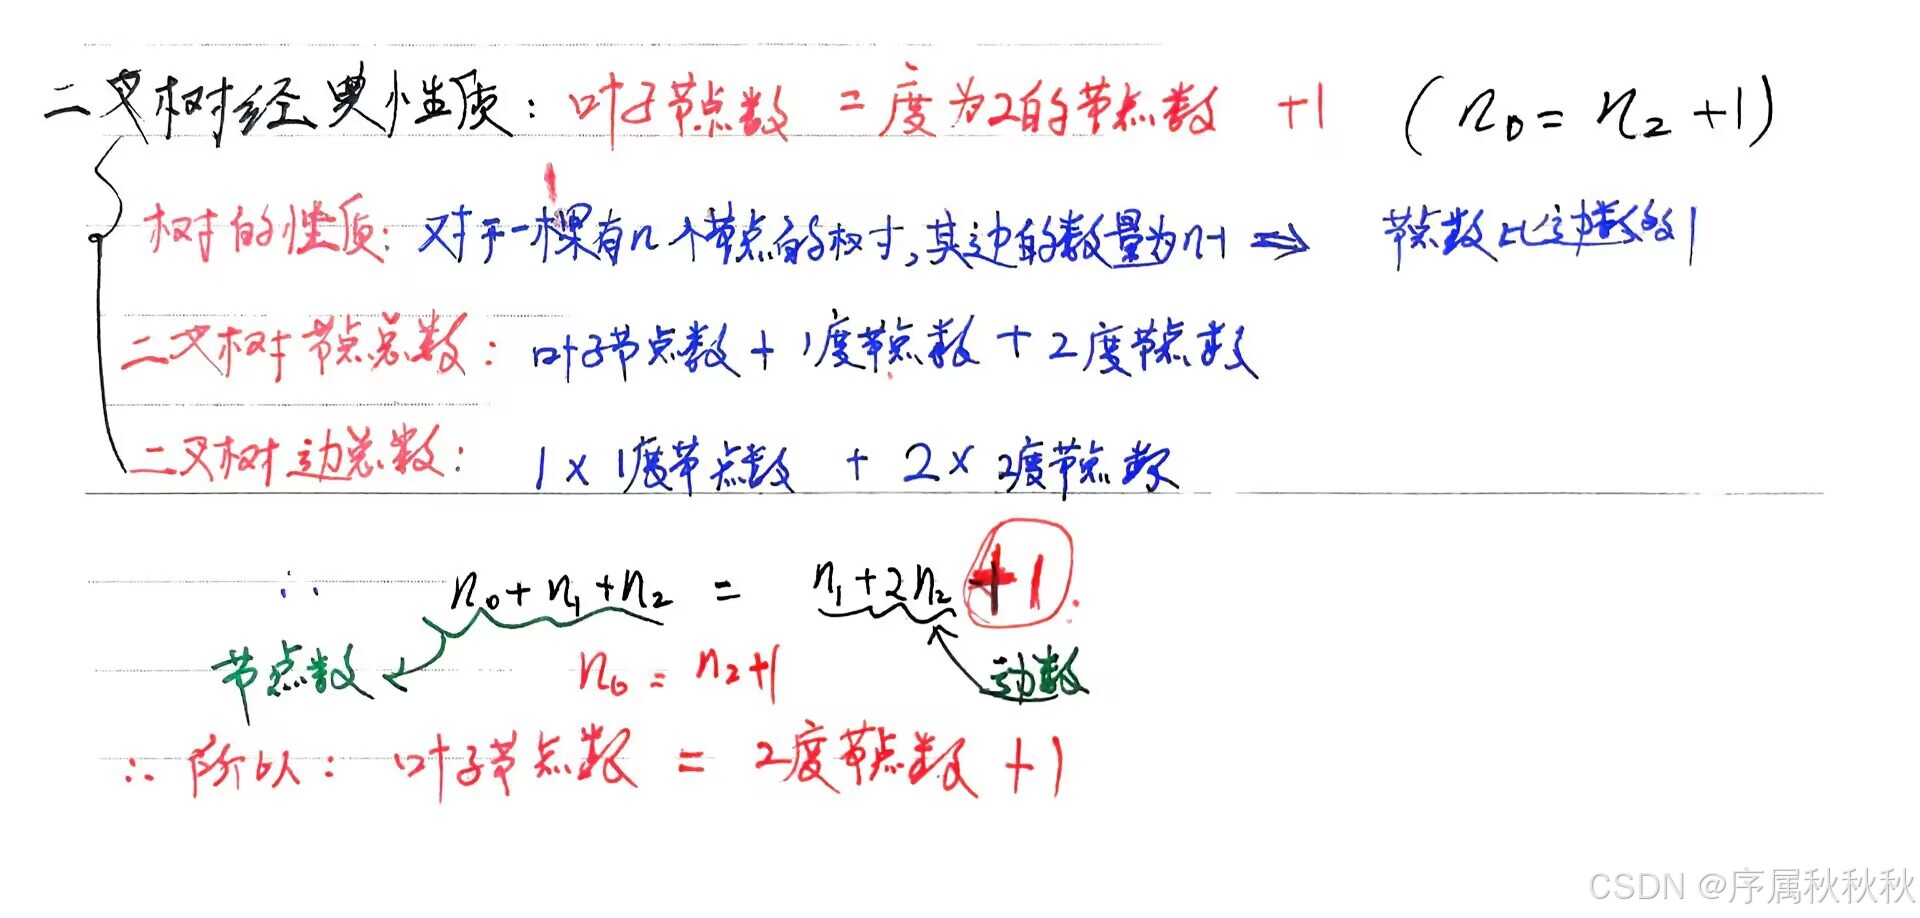 二叉树经典性质：叶子节点数 = 度为2的节点数 +1 (n₀ = n₂ +1)
树的性质：对于一棵有n个节点的树，其边的数量为n-1 ⇒ 节点数比边数多1
二叉树节点总数：叶子节点数 + 1度节点数 + 2度节点数
二叉树边总数：1 × 1度节点数 + 2 × 2度节点数
∵ n₀ + n₁ + n₂ = n₁ + 2n₂ +1
节点数 n₀ = n₂+1 边数
∴ 所以：叶子节点数 = 2度节点数 +1
CSDN @序属秋秋秋